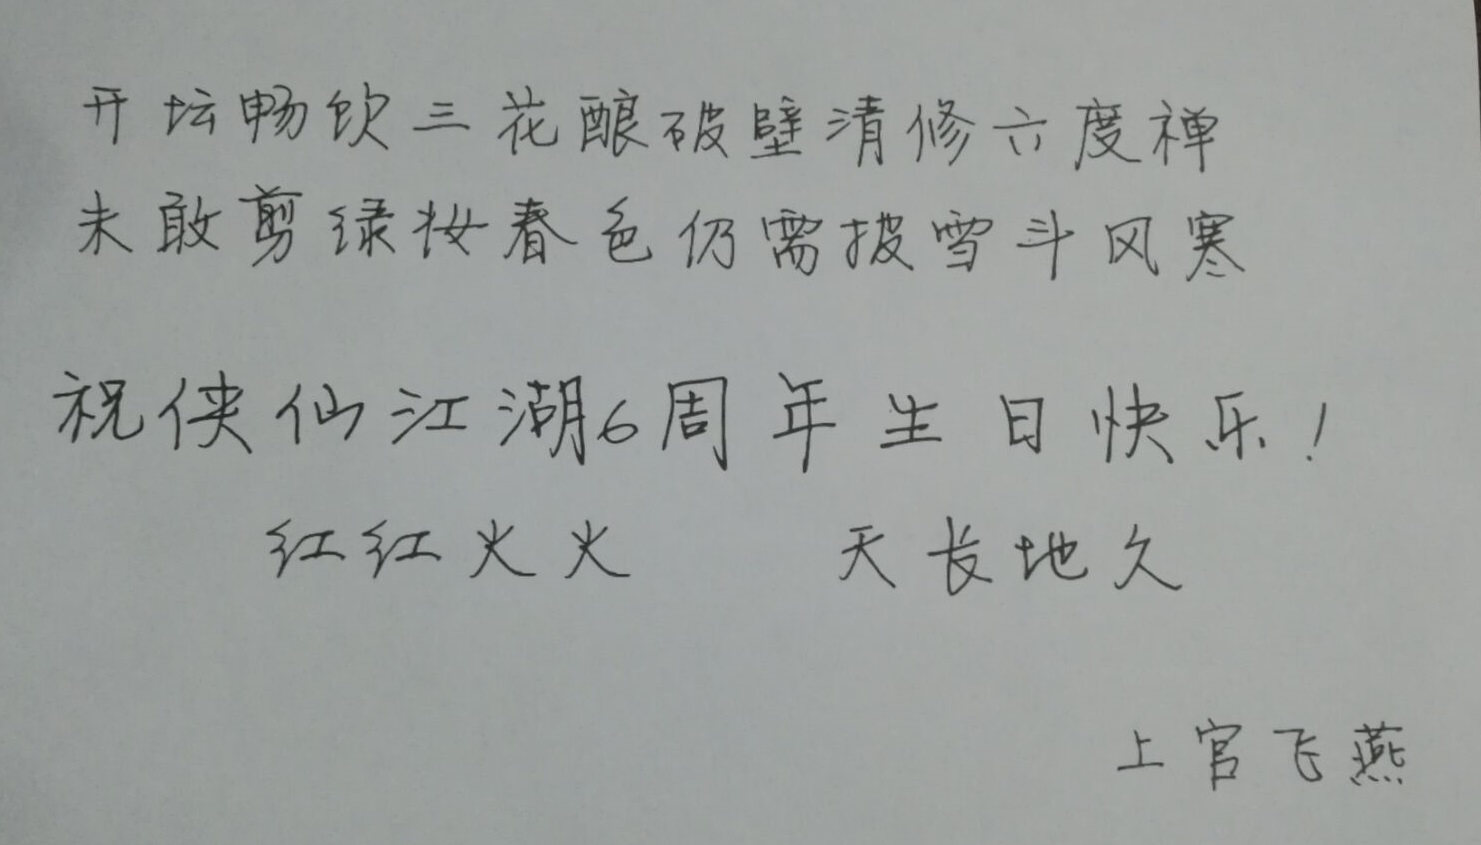 开坛畅饮三花酿破壁清修六度禅
未敢剪绿妆春色仍需披雪斗风寒
祝侠仙江湖6周年生日快乐！
红红火火 天长地久
上官飞燕